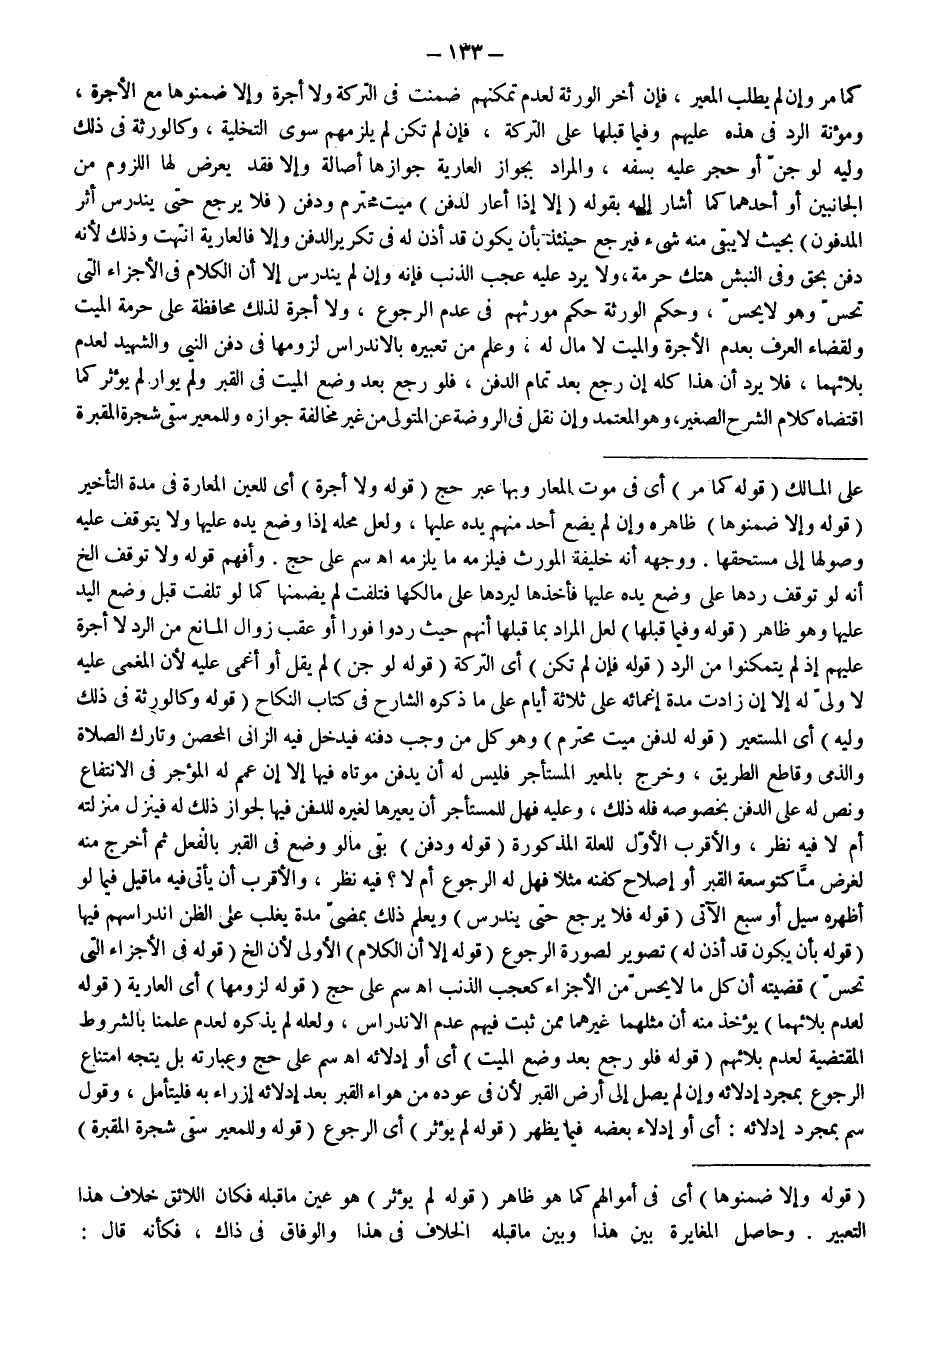 – ١٣٣ –
كما مر وإن لم يطلب المعير ، فإن أخر الورثة لعدم تمكنهم ضمنت فى التركة ولا أجرة وإلا ضمنوها مع الأجرة ،
ومؤنة الرد فى هذه عليهم وفيما قبلها على التركة ، فإن لم تكن لم يلزمهم سوى التخلية ، وكالورثة فى ذلك
وليه لو جنّ أو حجر عليه بسفه ، والمراد بجواز العارية جوازها أصالة وإلا فقد يعرض لها اللزوم من
الجانبين أو أحدهما كما أشار إليه بقوله ( إلا إذا أعار لدفن ) ميت محترم ودفن ( فلا يرجع حتى يندرس أثر
المدفون ) بحيث لايبقى منه شىء فيرجع حينئذ بأن يكون قد أذن له فى تكرير الدفن وإلا فالعارية انتهت وذلك لأنه
دفن بحق وفى النبش هتك حرمة ، ولا يرد عليه عجب الذنب فإنه وإن لم يندرس إلا أن الكلام فى الأجزاء التى
تحسّ وهو لايحسّ ، وحكم الورثة حكم مورثهم فى عدم الرجوع ، ولا أجرة لذلك محافظة على حرمة الميت
ولقضاء العرف بعدم الأجرة والميت لا مال له ، وعلم من تعبيره بالاندراس لزومها فى دفن النبى والشهيد لعدم
بلائهما ، فلا يرد أن هذا كله إن رجع بعد تمام الدفن ، فلو رجع بعد وضع الميت فى القبر ولم يوار لم يؤثر كما
اقتضاه كلام الشرح الصغير، وهو المعتمد وإن نقل فى الروضة عن المتولى من غير مخالفة جوازه وللمعير سقى شجرة المقبرة
على المالك ( قوله كما مر ) أى فى موت المعار وبها عبر حج ( قوله ولا أجرة ) أى للعين المعارة فى مدة التأخير
( قوله وإلا ضمنوها ) ظاهره وإن لم يضع أحد منهم يده عليها ، ولعل محله إذا وضع يده عليها ولا يتوقف عليه
وصولها إلى مستحقها . ووجهه أنه خليفة المورث فيلزمه ما يلزمه اه سم على حج . وأفهم قوله ولا توقف الخ
أنه لو توقف ردها على وضع يده عليها فأخذها ليردها على مالكها فتلفت لم يضمنها كما لو تلفت قبل وضع اليد
عليها وهو ظاهر ( قوله وفيما قبلها ) لعل المراد بما قبلها أنهم حيث ردوا فورا أو عقب زوال المانع من الرد لا أجرة
عليهم إذ لم يتمكنوا من الرد ( قوله فإن لم تكن ) أى التركة ( قوله لو جن ) لم يقل أو أغمى عليه لأن المغمى عليه
لا ولىّ له إلا إن زادت مدة إغمائه على ثلاثة أيام على ما ذكره الشارح فى كتاب النكاح ( قوله وكالورثة فى ذلك
وليه ) أى المستعير ( قوله لدفن ميت محترم ) وهو كل من وجب دفنه فيدخل فيه الزانى المحصن وتارك الصلاة
والذمى وقاطع الطريق ، وخرج بالمعير المستأجر فليس له أن يدفن موتاه فيها إلا إن عمم له المؤجر فى الانتفاع
ونص له على الدفن بخصوصه فله ذلك ، وعليه فهل للمستأجر أن يعيرها لغيره للدفن فيها لجواز ذلك له فينزل منزلته
أم لا فيه نظر ، والأقرب الأوّل للعلة المذكورة ( قوله ودفن ) بقى مالو وضع فى القبر بالفعل ثم أخرج منه
لغرض مّا كتوسعة القبر أو إصلاح كفنه مثلا فهل له الرجوع أم لا ؟ فيه نظر ، والأقرب أن يأتى فيه ماقيل فيما لو
أظهره سيل أو سبع الآتى ( قوله فلا يرجع حتى يندرس ) ويعلم ذلك بمضىّ مدة يغلب على الظن اندراسهم فيها
( قوله بأن يكون قد أذن له ) تصوير لصورة الرجوع ( قوله إلا أن الكلام ) الأولى لأن الخ ( قوله فى الأجزاء التى
تحسّ ) قضيته أن كل ما لايحسّ من الأجزاء كعجب الذنب اه سم على حج ( قوله لزومها ) أى العارية ( قوله
لعدم بلائهما ) يؤخذ منه أن مثلهما غيرهما ممن ثبت فيهم عدم الاندراس ، ولعله لم يذكره لعدم علمنا بالشروط
المقتضية لعدم بلائهم ( قوله فلو رجع بعد وضع الميت ) أى أو إدلائه اه سم على حج وعبارته بل يتجه امتناع
الرجوع بمجرد إدلائه وإن لم يصل إلى أرض القبر لأن فى عوده من هواء القبر بعد إدلائه إزراء به فليتأمل ، وقول
سم بمجرد إدلائه : أى أو إدلاء بعضه فيما يظهر ( قوله لم يؤثر ) أى الرجوع ( قوله وللمعير سقى شجرة المقبرة )
( قوله وإلا ضمنوها ) أى فى أموالهم كما هو ظاهر ( قوله لم يؤثر ) هو عين ماقبله فكان اللائق خلاف هذا
التعبير . وحاصل المغايرة بين هذا وبين ماقبله الخلاف فى هذا والوفاق فى ذاك ، فكأنه قال :